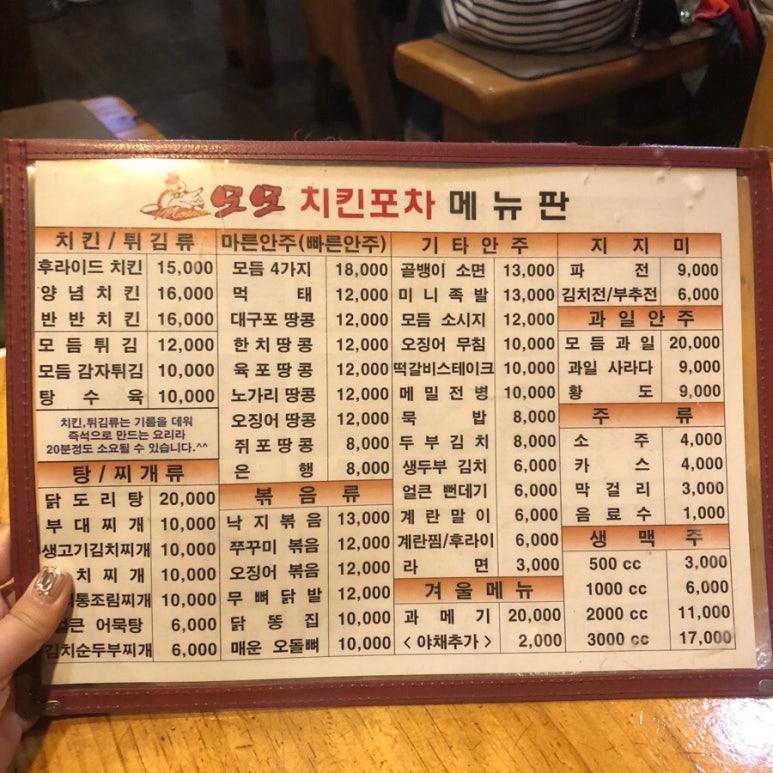 모모 치킨포차 메뉴판
치킨/튀김류
후라이드 치킨 15,000
양념 치킨 16,000
반반 치킨 16,000
모듬 튀김 12,000
모듬 감자튀김 10,000
탕수육 10,000
치킨,튀김류는 기름을 데워
즉석으로 만드는 요리라
20분정도 소요될 수 있습니다.^^
탕/찌개류
닭도리탕 20,000
부대찌개 10,000
생고기김치찌개 10,000
치찌개 10,000
통조림찌개 10,000
어묵탕 6,000
김치순두부찌개 6,000
마른안주(빠른안주)
모듬 4가지 18,000
먹태 12,000
대구포 땅콩 12,000
한치 땅콩 12,000
육포 땅콩 12,000
노가리 땅콩 12,000
오징어 땅콩 12,000
쥐포 땅콩 8,000
은행 8,000
볶음류
낙지볶음 13,000
쭈꾸미 볶음 12,000
오징어 볶음 12,000
무뼈닭발 12,000
닭똥집 10,000
매운 오돌뼈 10,000
기타안주
골뱅이 소면 13,000
미니족발 13,000
모듬 소시지 12,000
오징어 무침 10,000
떡갈비스테이크 10,000
메밀전병 10,000
묵밥 8,000
두부김치 8,000
생두부 김치 6,000
얼큰 뻔데기 6,000
계란말이 6,000
계란찜/후라이 6,000
라면 3,000
겨울메뉴
과메기 20,000
<야채추가> 2,000
지지미
파전 9,000
김치전/부추전 6,000
과일안주
모듬과일 20,000
과일 사라다 9,000
황도 9,000
주류
소주 4,000
카스 4,000
막걸리 3,000
음료수 1,000
생맥주
500 cc 3,000
1000 cc 6,000
2000 cc 11,000
3000 cc 17,000